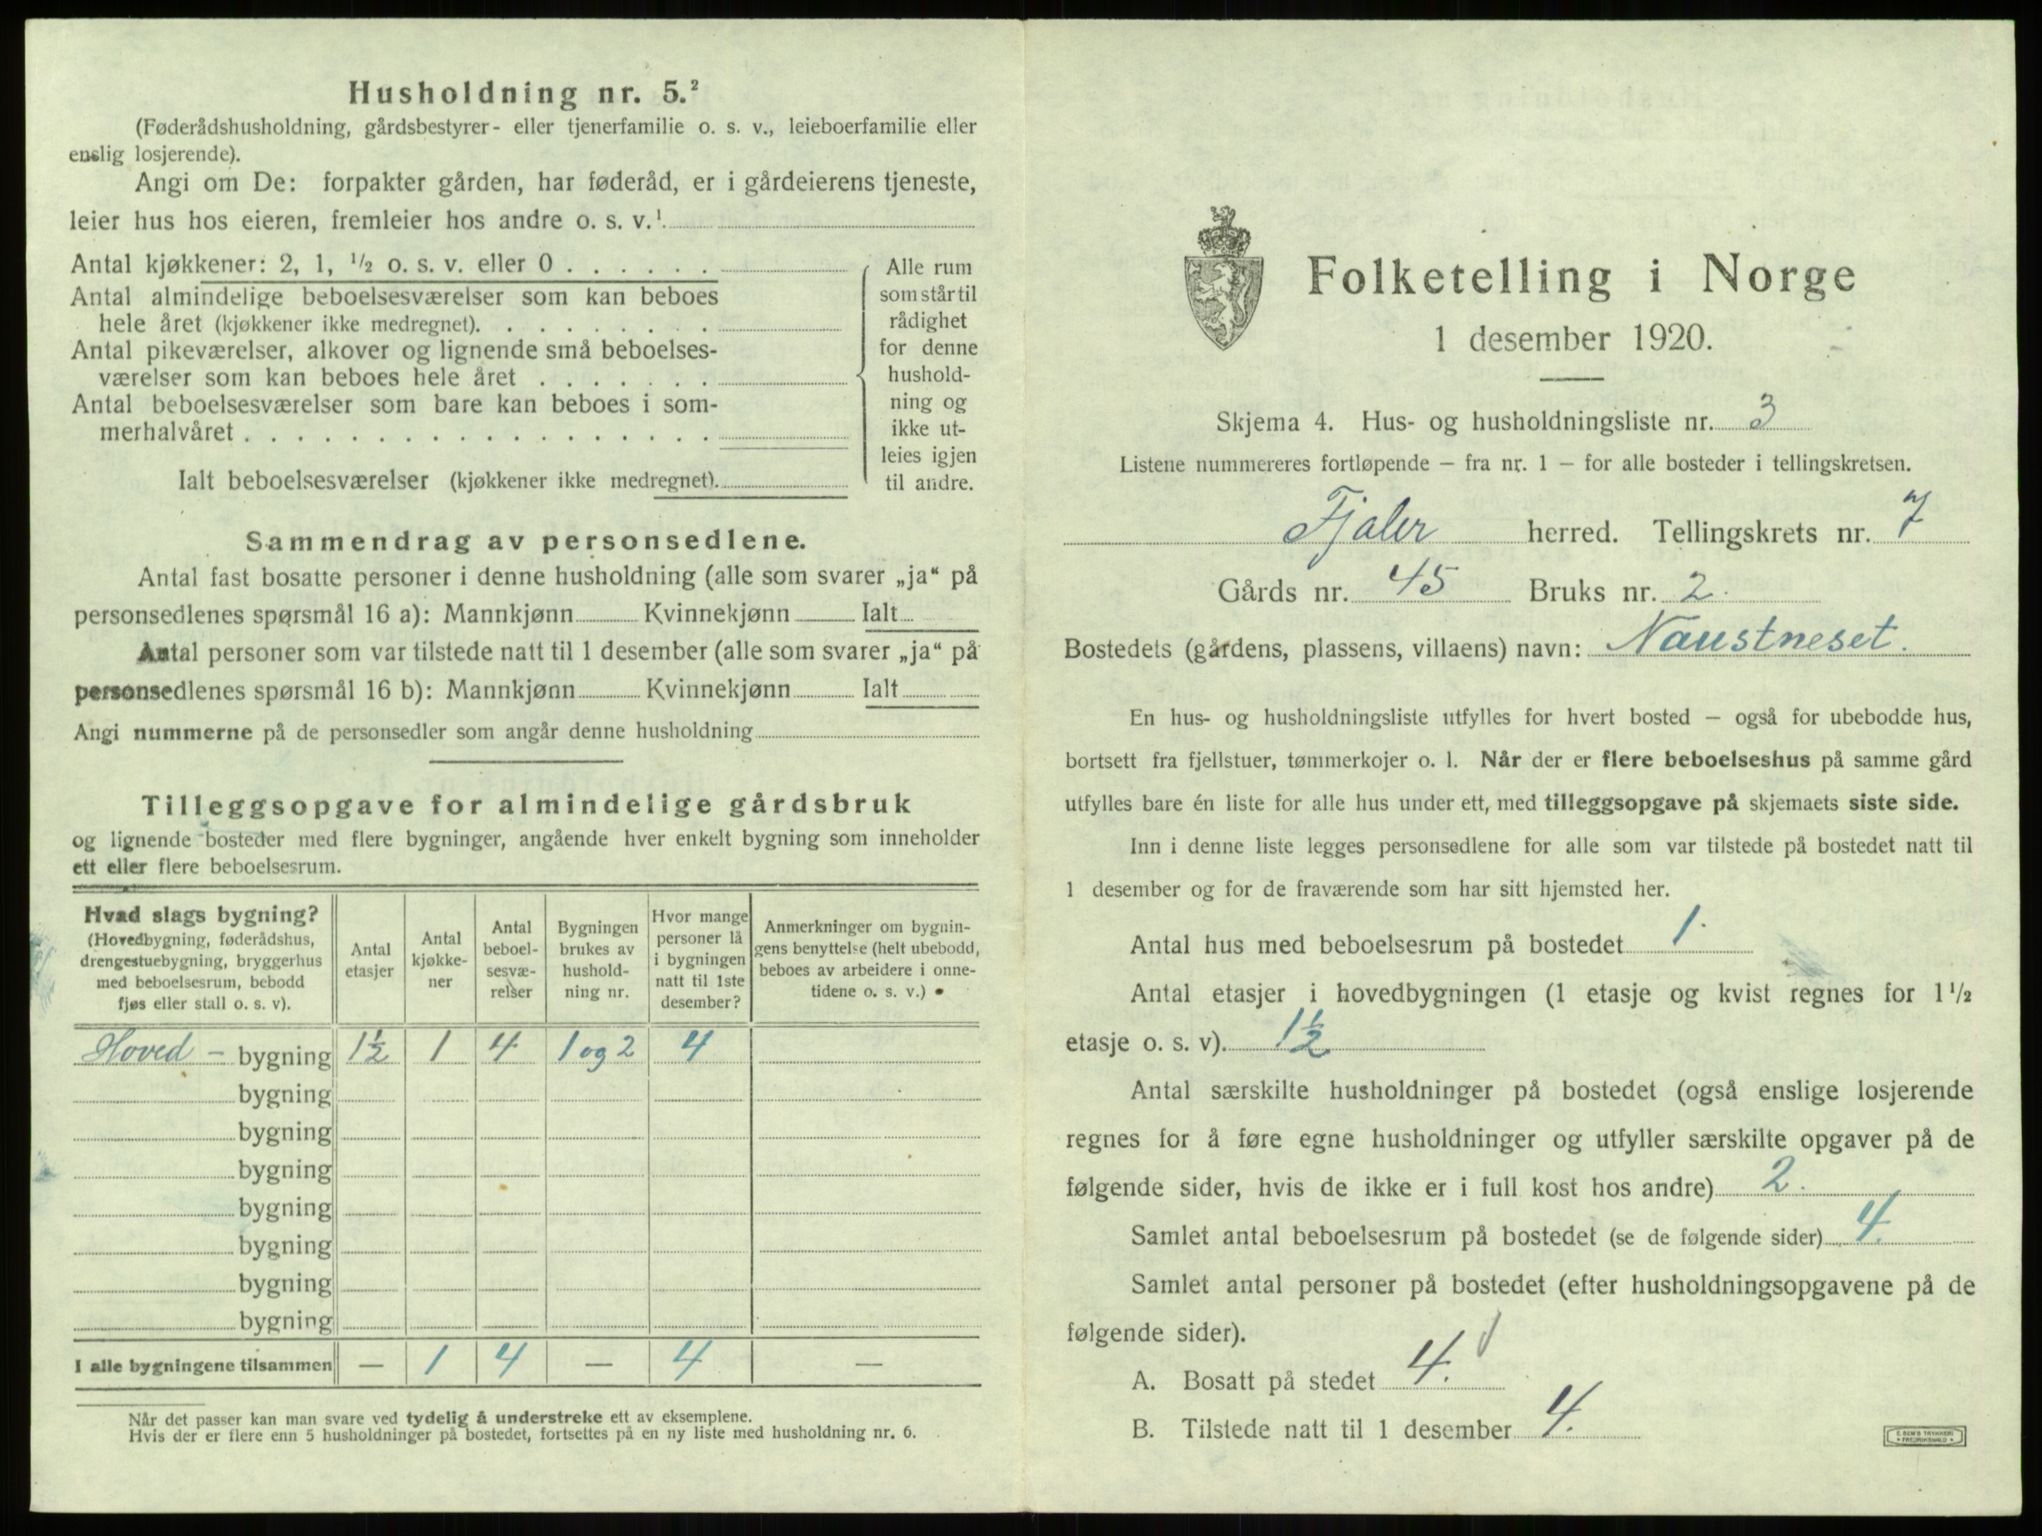 Husholdning nr. 5.²
(Føderådshusholdning, gårdsbestyrer- eller tjenerfamilie o. s. v., leieboerfamilie eller
enslig losjerende).
Angi om De: forpakter gården, har føderåd, er i gårdeierens tjeneste,
leier hus hos eieren, fremleier hos andre o. s. v.¹
Antal kjøkkener: 2, 1, ½ o. s. v. eller 0
Antal almindelige beboelsesværelser som kan beboes
hele året (kjøkkener ikke medregnet).
Antal pikeværelser, alkover og lignende små beboelses-
værelser som kan beboes hele året
Antal beboelsesværelser som bare kan beboes i som-
merhalvåret
Ialt beboelsesværelser (kjøkkener ikke medregnet).
Alle rum
som står til
rådighet
for denne
hushold-
ning og
ikke ut-
leies igjen
til andre.
Sammendrag av personsedlene.
Antal fast bosatte personer i denne husholdning (alle som svarer „ja“ på
personsedlenes spørsmål 16 a): Mannkjønn Kvinnekjønn Ialt
Antal personer som var tilstede natt til 1 desember (alle som svarer „ja“ på
personsedlenes spørsmål 16 b): Mannkjønn Kvinnekjønn Ialt
Angi nummerne på de personsedler som angår denne husholdning
Tilleggsopgave for almindelige gårdsbruk
og lignende bosteder med flere bygninger, angående hver enkelt bygning som inneholder
ett eller flere beboelsesrum.
Hvad slags bygning?
(Hovedbygning, føderådshus,
drengestuebygning, bryggerhus
med beboelsesrum, bebodd
fjøs eller stall o. s. v).
Antal
etasjer
Antal
kjøkke-
ner
Antal
beboel-
sesvæ-
relser
Bygningen
brukes av
hushold-
ning nr.
Hvor mange
personer lå
i bygningen
natt til 1ste
desember?
Anmerkninger om bygnin-
gens benyttelse (helt ubebodd,
beboes av arbeidere i onne-
tidene o. s. v.)
Hoved - bygning 1½ 1 4 1 og 2 4
bygning
bygning
bygning
bygning
bygning
bygning
bygning
I alle bygningene tilsammen — 1 4 — 4 —
Når det passer kan man svare ved tydelig å understreke ett av eksemplene.
Hvis der er flere enn 5 husholdninger på bostedet, fortsettes på en ny liste med husholdning nr. 6.
Folketelling i Norge
1 desember 1920.
Skjema 4. Hus- og husholdningsliste nr. 3
Listene nummereres fortløpende – fra nr. 1 – for alle bosteder i tellingskretsen.
Fjaler herred. Tellingskrets nr. 7
Gårds nr. 45 Bruks nr. 2.
Bostedets (gårdens, plassens, villaens) navn: Naustneset.
En hus- og husholdningsliste utfylles for hvert bosted – også for ubebodde hus,
bortsett fra fjellstuer, tømmerkojer o. l. Når der er flere beboelseshus på samme gård
utfylles bare én liste for alle hus under ett, med tilleggsopgave på skjemaets siste side.
Inn i denne liste legges personsedlene for alle som var tilstede på bostedet natt til
1 desember og for de fraværende som har sitt hjemsted her.
Antal hus med beboelsesrum på bostedet 1.
Antal etasjer i hovedbygningen (1 etasje og kvist regnes for 1½
etasje o. s. v). 1½
Antal særskilte husholdninger på bostedet (også enslige losjerende
regnes for å føre egne husholdninger og utfyller særskilte opgaver på de
følgende sider, hvis de ikke er i full kost hos andre) 2.
Samlet antal beboelsesrum på bostedet (se de følgende sider) 4.
Samlet antal personer på bostedet (efter husholdningsopgavene på de
følgende sider).
A. Bosatt på stedet 4.
B. Tilstede natt til 1 desember 4.
E. SEM'S TRYKKERI
FREDRIKSHALD